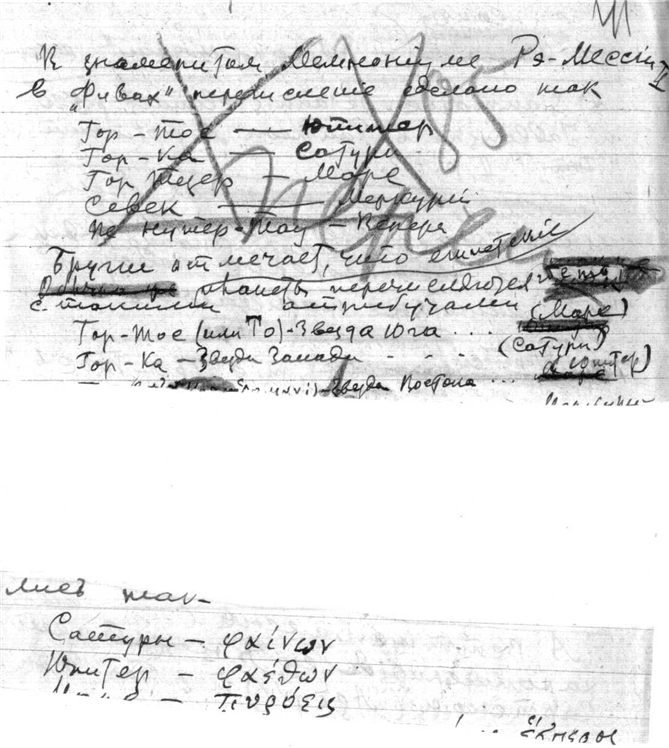 В знаменитом Мемнониуме Рэ-Мессу II
в „Фивах" перечисление сделано так
Гор-тос — Юпитер
Гор-Ка — Сатурн
Гор Тезер — Марс
Севек — Меркурий
Пе нутер-Тау — Венера
85
Бругш отмечает, что египетские
планеты перечисляются
с такими атрибутами
Гор-Тос (или То)-Звезда Юга . . . (Марс)
Гор-Ка — Звезда Запада - - - (Сатурн)
Звезда Востока ... (Юпитер)
лись так
Сатурн — φαίνων
Юпитер — φαέθων
— Πυρόεις